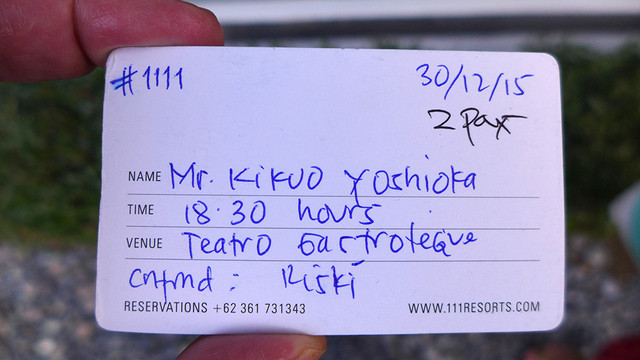 #1111 30/12/15
2 pax
NAME Mr. Kikuo Yoshioka
TIME 18.30 hours
VENUE Teatro Gastroteque
Cnfmd : Riski
RESERVATIONS +62 361 731343 WWW.111RESORTS.COM